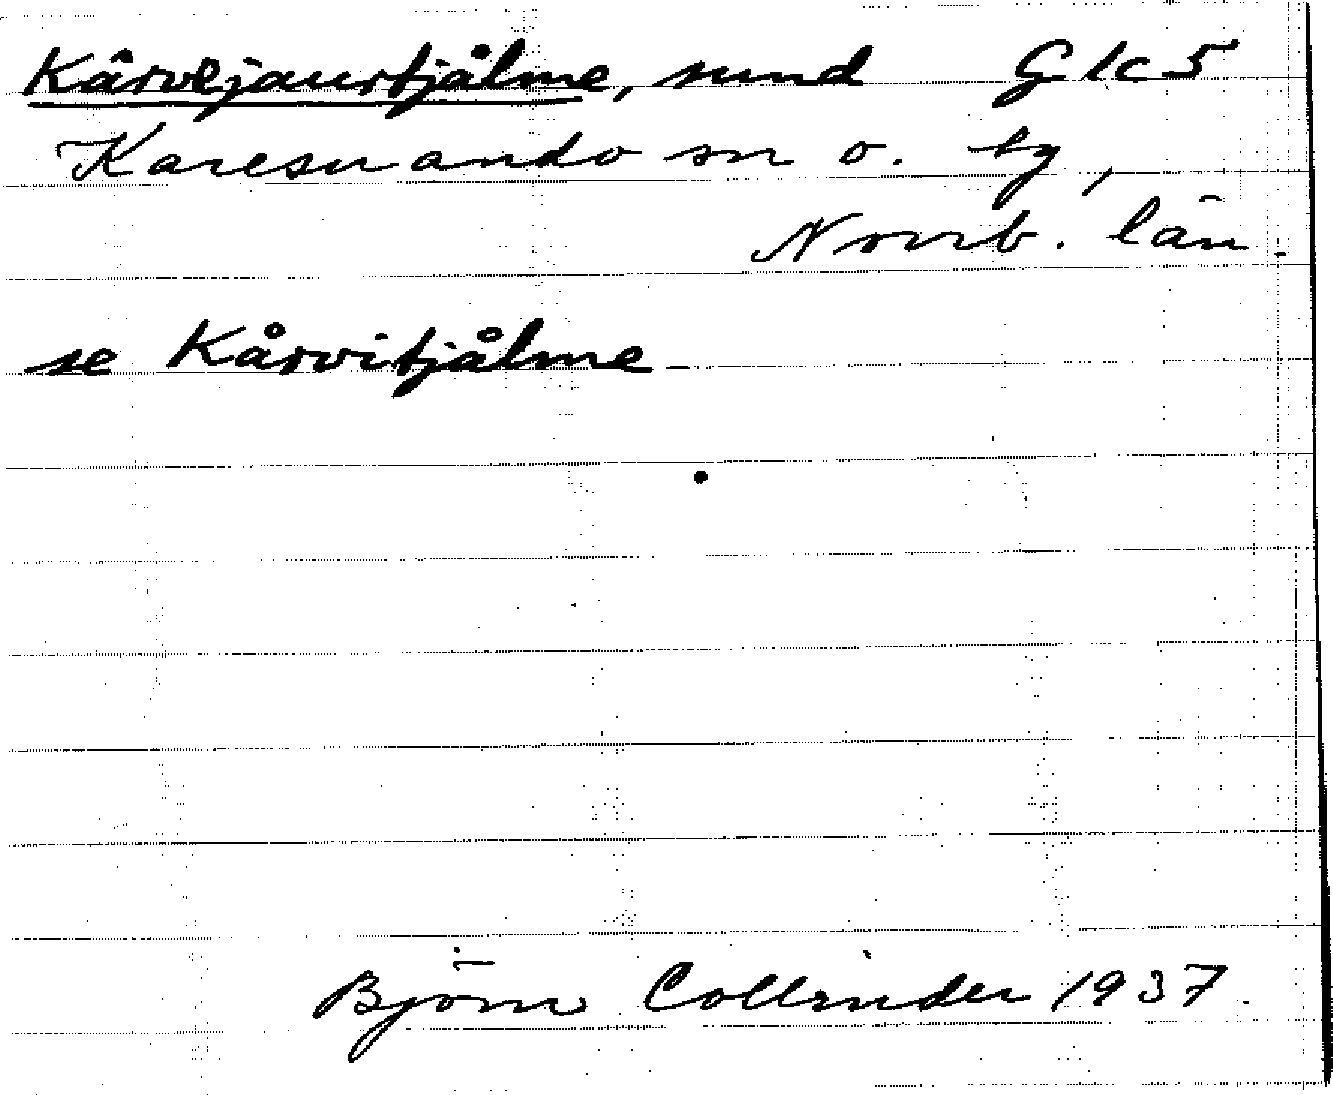 Kårvejaurtjålme, sund G k 5
Karesuando sn o. tg,
Norrb. län.
se Kårvitjålme
Björn Collinder 1937.